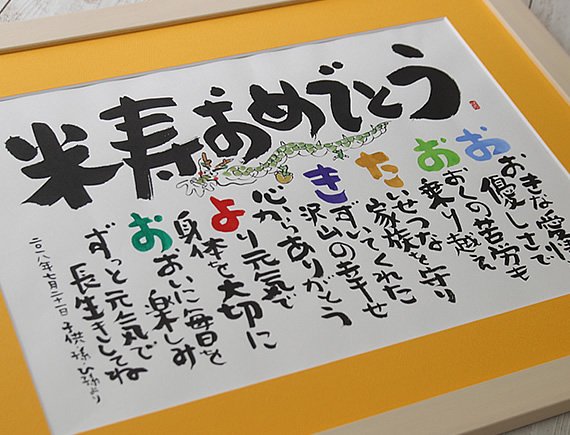 米寿おめでとう
おおきな愛情
優しさで
おおくの苦労も
乗り越え
たいせつな
家族を守り
きずいてくれた
沢山の幸せ
心からありがとう
より元気で
身体を大切に
おおいに毎日を
楽しみ
ずっと元気で
長生きしてね
二〇一八年七月二十一日 子供・孫・ひ孫より